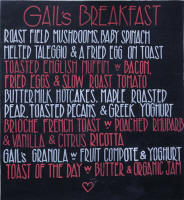 GAIL'S BREAKFAST
ROAST FIELD MUSHROOMS, BABY SPINACH
MELTED TALEGGIO & A FRIED EGG ON TOAST
TOASTED ENGLISH MUFFIN W BACON,
FRIED EGGS & SLOW ROAST TOMATO
BUTTERMILK HOTCAKES, MAPLE ROASTED
PEAR, TOASTED PECANS & GREEK YOGHURT
BRIOCHE FRENCH TOAST W POACHED RHUBARB
& VANILLA & CITRUS RICOTTA
GAIL'S GRANOLA W FRUIT COMPOTE & YOGHURT
TOAST OF THE DAY W BUTTER & ORGANIC JAM